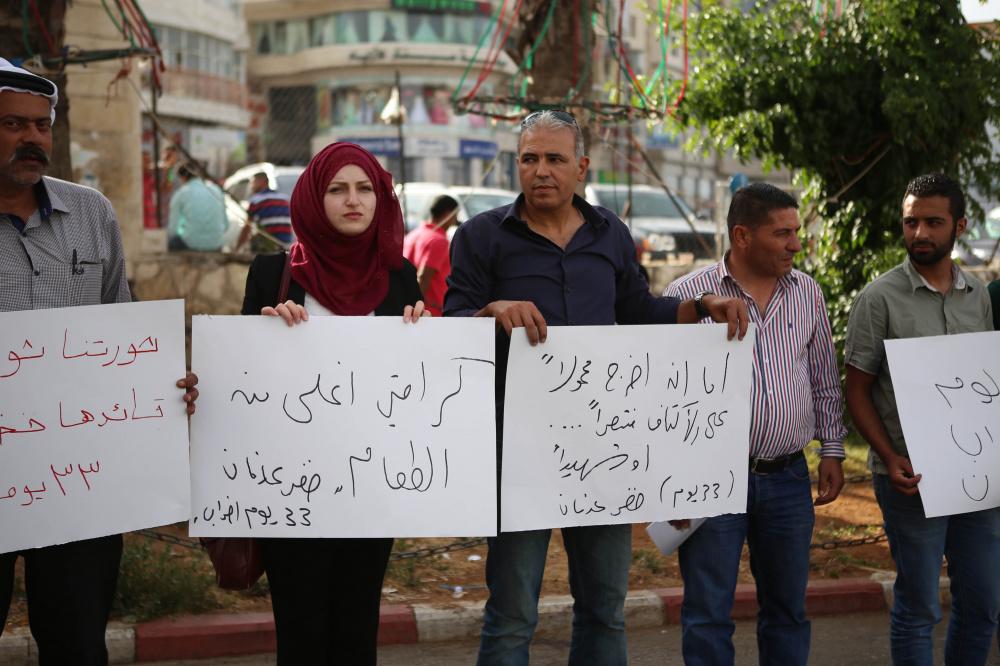 ثورتنا ثو
قائدها خض
٣٣ يوم
كرامتي اغلى من
الطعام، خضر عدنان
33 يوم اضراب،
اما انه اخرج محمولاً
على الأكتاف منتصراً ....
او شهيداً
(33 يوم) خضر عدنان